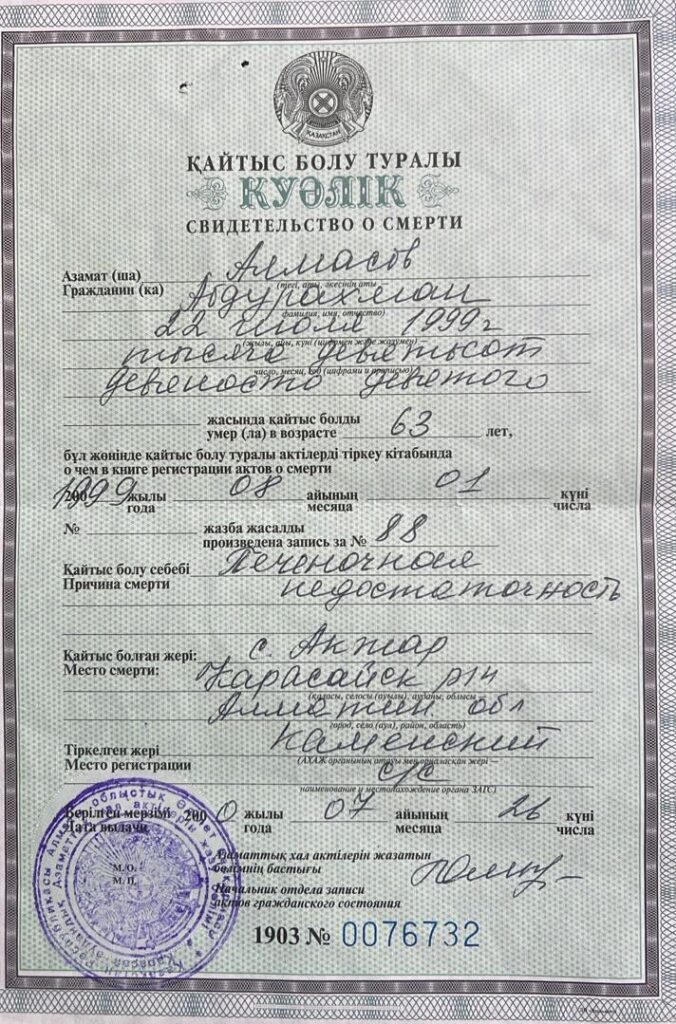 ҚАЗАҚСТАН
ҚАЙТЫС БОЛУ ТУРАЛЫ
КУӘЛІК
СВИДЕТЕЛЬСТВО О СМЕРТИ
Азамат (ша) Алмасов
(тегі, аты, әкесінің аты
Гражданин (ка) Абдурахман
фамилия, имя, отчество)
22 июля 1999 г
(жылы, айы, күні (цифрмен және жазумен)
тысяча девятьсот
число, месяц, год (цифрами и прописью)
девяносто девятого
жасында қайтыс болды
умер (ла) в возрасте 63 лет,
бұл жөнінде қайтыс болу туралы актілерді тіркеу кітабында
о чем в книге регистрации актов о смерти
1999 жылы 08 айының 01 күні
года месяца числа
№ жазба жасалды
произведена запись за № 88
Қайтыс болу себебі Печеночная
Причина смерти недостаточность
Қайтыс болған жері: с. Акжар
Место смерти: Карасайск р/н
(қаласы, селосы (ауылы), ауданы, облысы
Алматин обл
город, село (аул), район, область)
Тіркелген жері Каменский
Место регистрации (АХАЖ органының атауы мен орналасқан жері —
с/с
наименование и местонахождение органа ЗАГС)
Берілген мерзімі 2000 жылы 07 айының 26 күні
Дата выдачи года месяца числа
М.О.
М.П.
Азаматтық хал актілерін жазатын
бөлімнің бастығы
Начальник отдела записи
актов гражданского состояния
1903 № 0076732